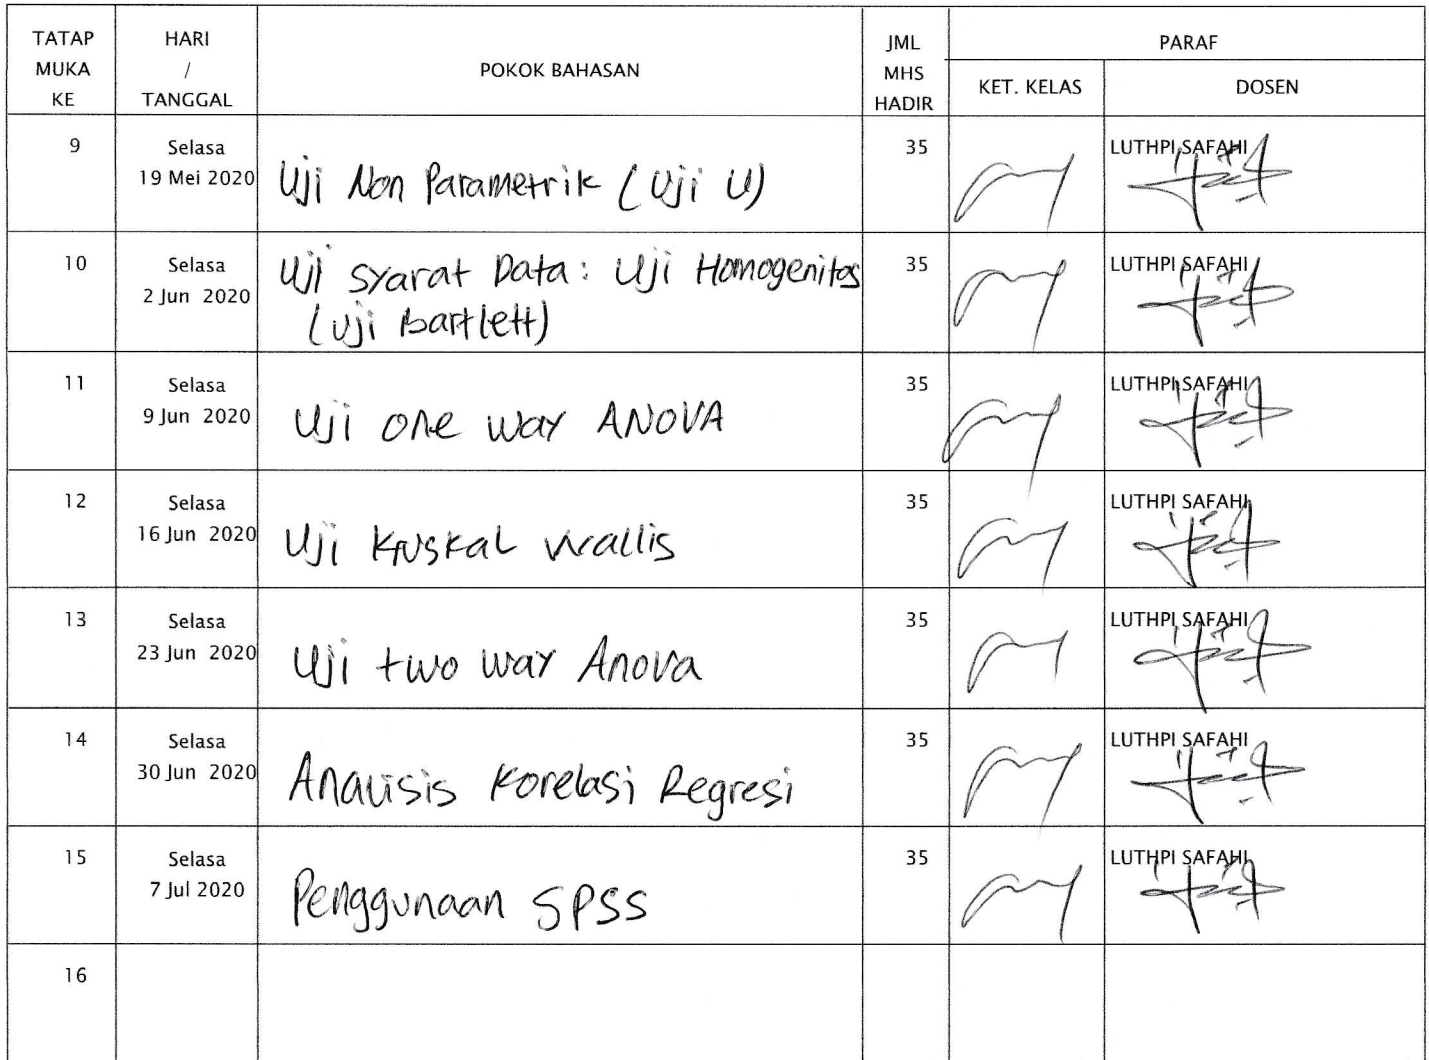 TATAP MUKA KE
HARI / TANGGAL
POKOK BAHASAN
JML MHS HADIR
PARAF
KET. KELAS
DOSEN
9
Selasa
19 Mei 2020
Uji Non Parametrik (Uji U)
35
LUTHPI SAFAHI
10
Selasa
2 Jun 2020
Uji Syarat Data: Uji Homogenitas
(Uji Bartlett)
35
LUTHPI SAFAHI
11
Selasa
9 Jun 2020
Uji one way ANOVA
35
LUTHPI SAFAHI
12
Selasa
16 Jun 2020
Uji Kruskal Wallis
35
LUTHPI SAFAHI
13
Selasa
23 Jun 2020
Uji two way Anova
35
LUTHPI SAFAHI
14
Selasa
30 Jun 2020
Analisis Korelasi Regresi
35
LUTHPI SAFAHI
15
Selasa
7 Jul 2020
Penggunaan SPSS
35
LUTHPI SAFAHI
16